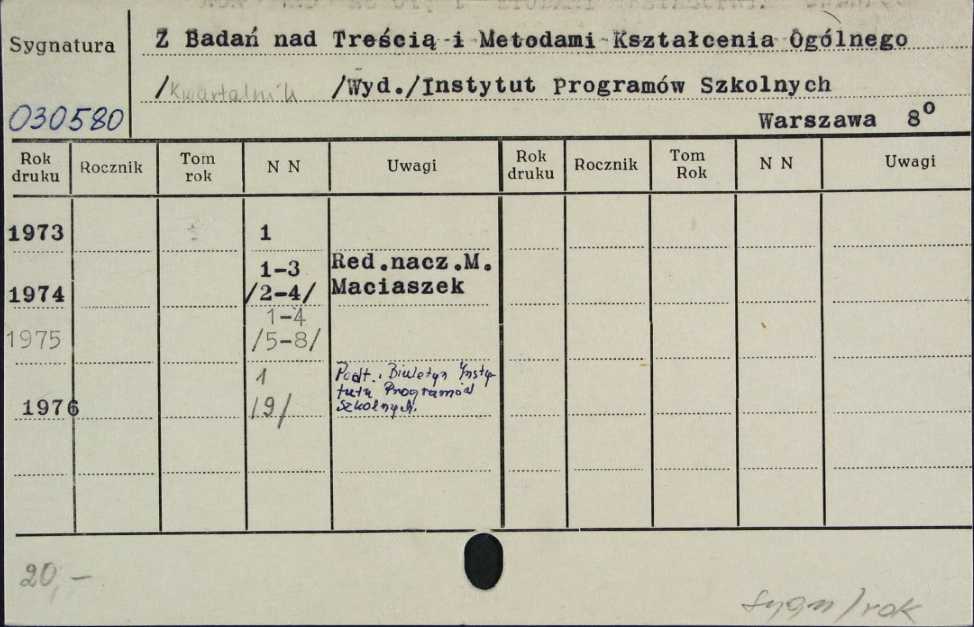 Sygnatura
Z Badań nad Treścią i Metodami Kształcenia Ogólnego
/Kwartalnik /Wyd./Instytut Programów Szkolnych
030580
Warszawa 8°
Rok druku Rocznik Tom rok N N Uwagi Rok druku Rocznik Tom Rok N N Uwagi
1973 1
1-3 Red.nacz.M.
1974 /2-4/ Maciaszek
1-4
1975 /5-8/
1 Podt.: Biuletyn Insty-
tutu Programów
1976 /9/ Szkolnych.
20,-
sygn/rok